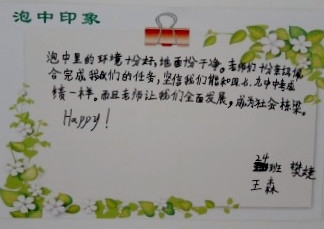 泡中印象
泡中里的环境十分好,地面十分干净。老师们十分亲切,配
合完成我们的任务,坚信我们能和
成
绩一样。而且老师让我们全面发展,成为社会栋梁。
Happy!
24班 樊婕
王森